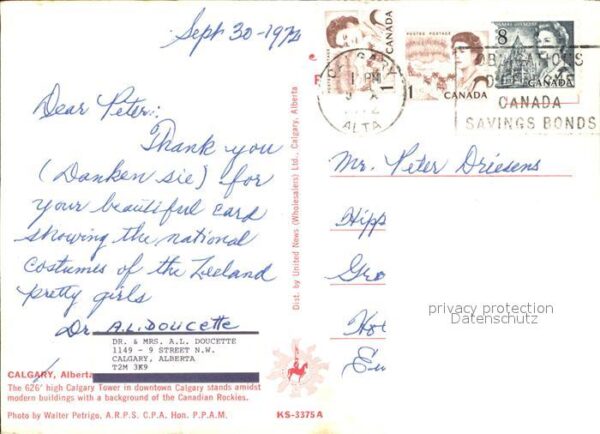 Sept 30-1972
Dear Peter:
Thank you
(Danken sie) for
your beautiful card
showing the national
costumes of the Zeeland
pretty girls
Dr. A.L. DOUCETTE
DR. & MRS. A.L. DOUCETTE
1149 - 9 STREET N.W.
CALGARY, ALBERTA
T2M 3K9
CALGARY, Alberta
The 626' high Calgary Tower in downtown Calgary stands amidst
modern buildings with a background of the Canadian Rockies.
Photo by Walter Petrigo, A.R.P.S. C.P.A. Hon. P.P.A.M.
KS-3375A
Dist. by United News (Wholesalers) Ltd., Calgary, Alberta
CANADA
1
POSTES POSTAGE
1
CANADA
8
CANADA
CALGARY
1 PM
ALTA
OBLIGATIONS
D'EPARGNE
CANADA
SAVINGS BONDS
Mr. Peter Driesens
Hipp
Gro
Hol
Eu
privacy protection
Datenschutz